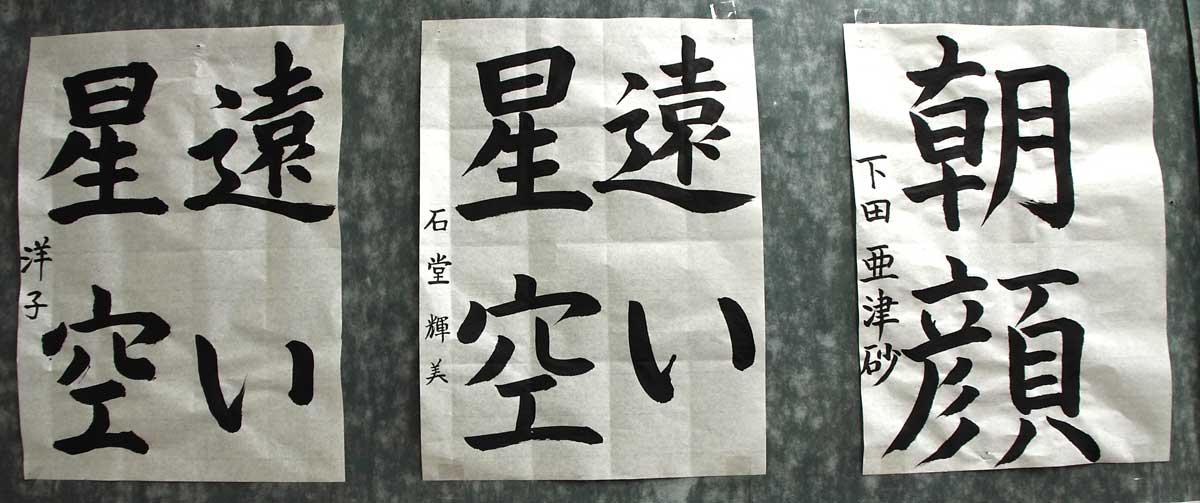 遠い
星空
洋子
遠い
星空
石堂輝美
朝顔
下田亜津砂